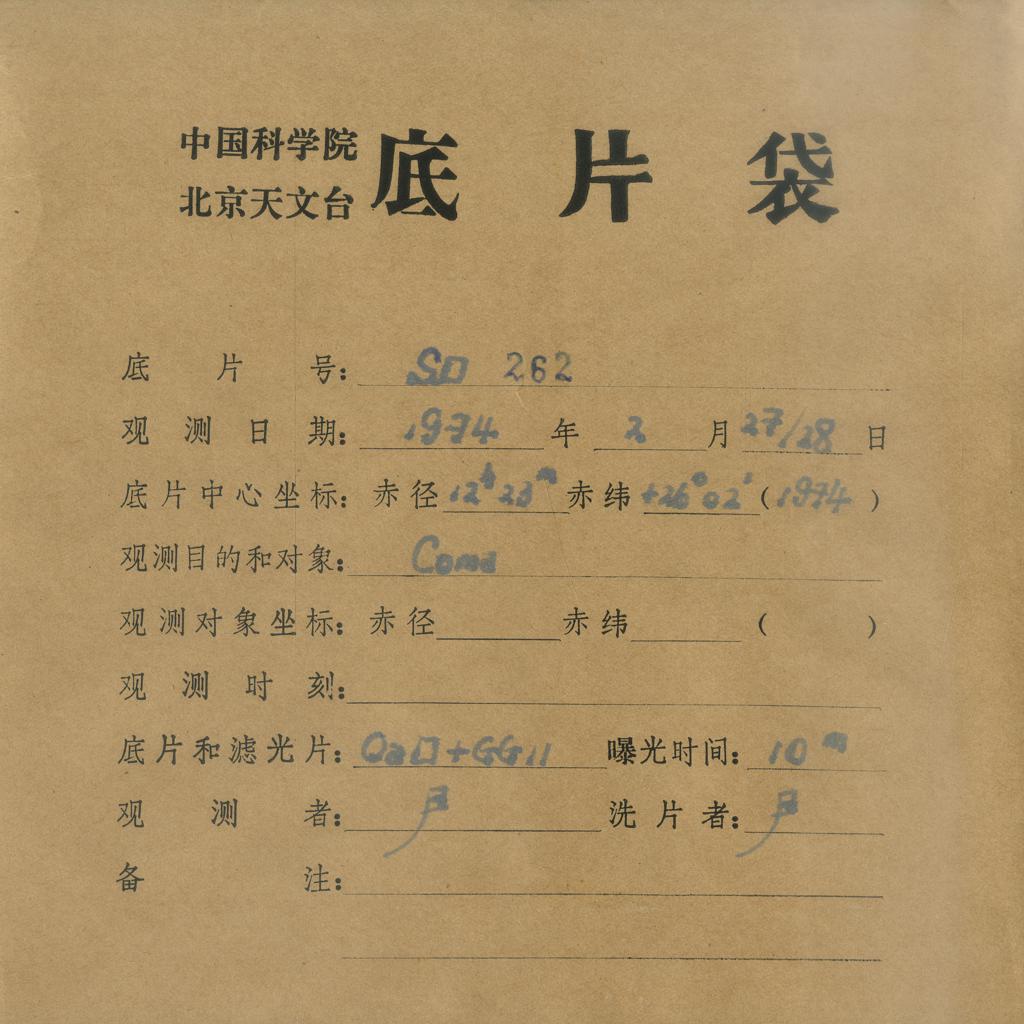 中国科学院
北京天文台
底片袋
底片号: SD 262
观测日期: 1974 年 2 月 27/28 日
底片中心坐标: 赤径 12h 23m 赤纬 +26°02′ (1974)
观测目的和对象: Coma
观测对象坐标: 赤径 赤纬 ( )
观测时刻:
底片和滤光片: OaD+GG11 曝光时间: 10m
观测者: 洗片者:
备注: